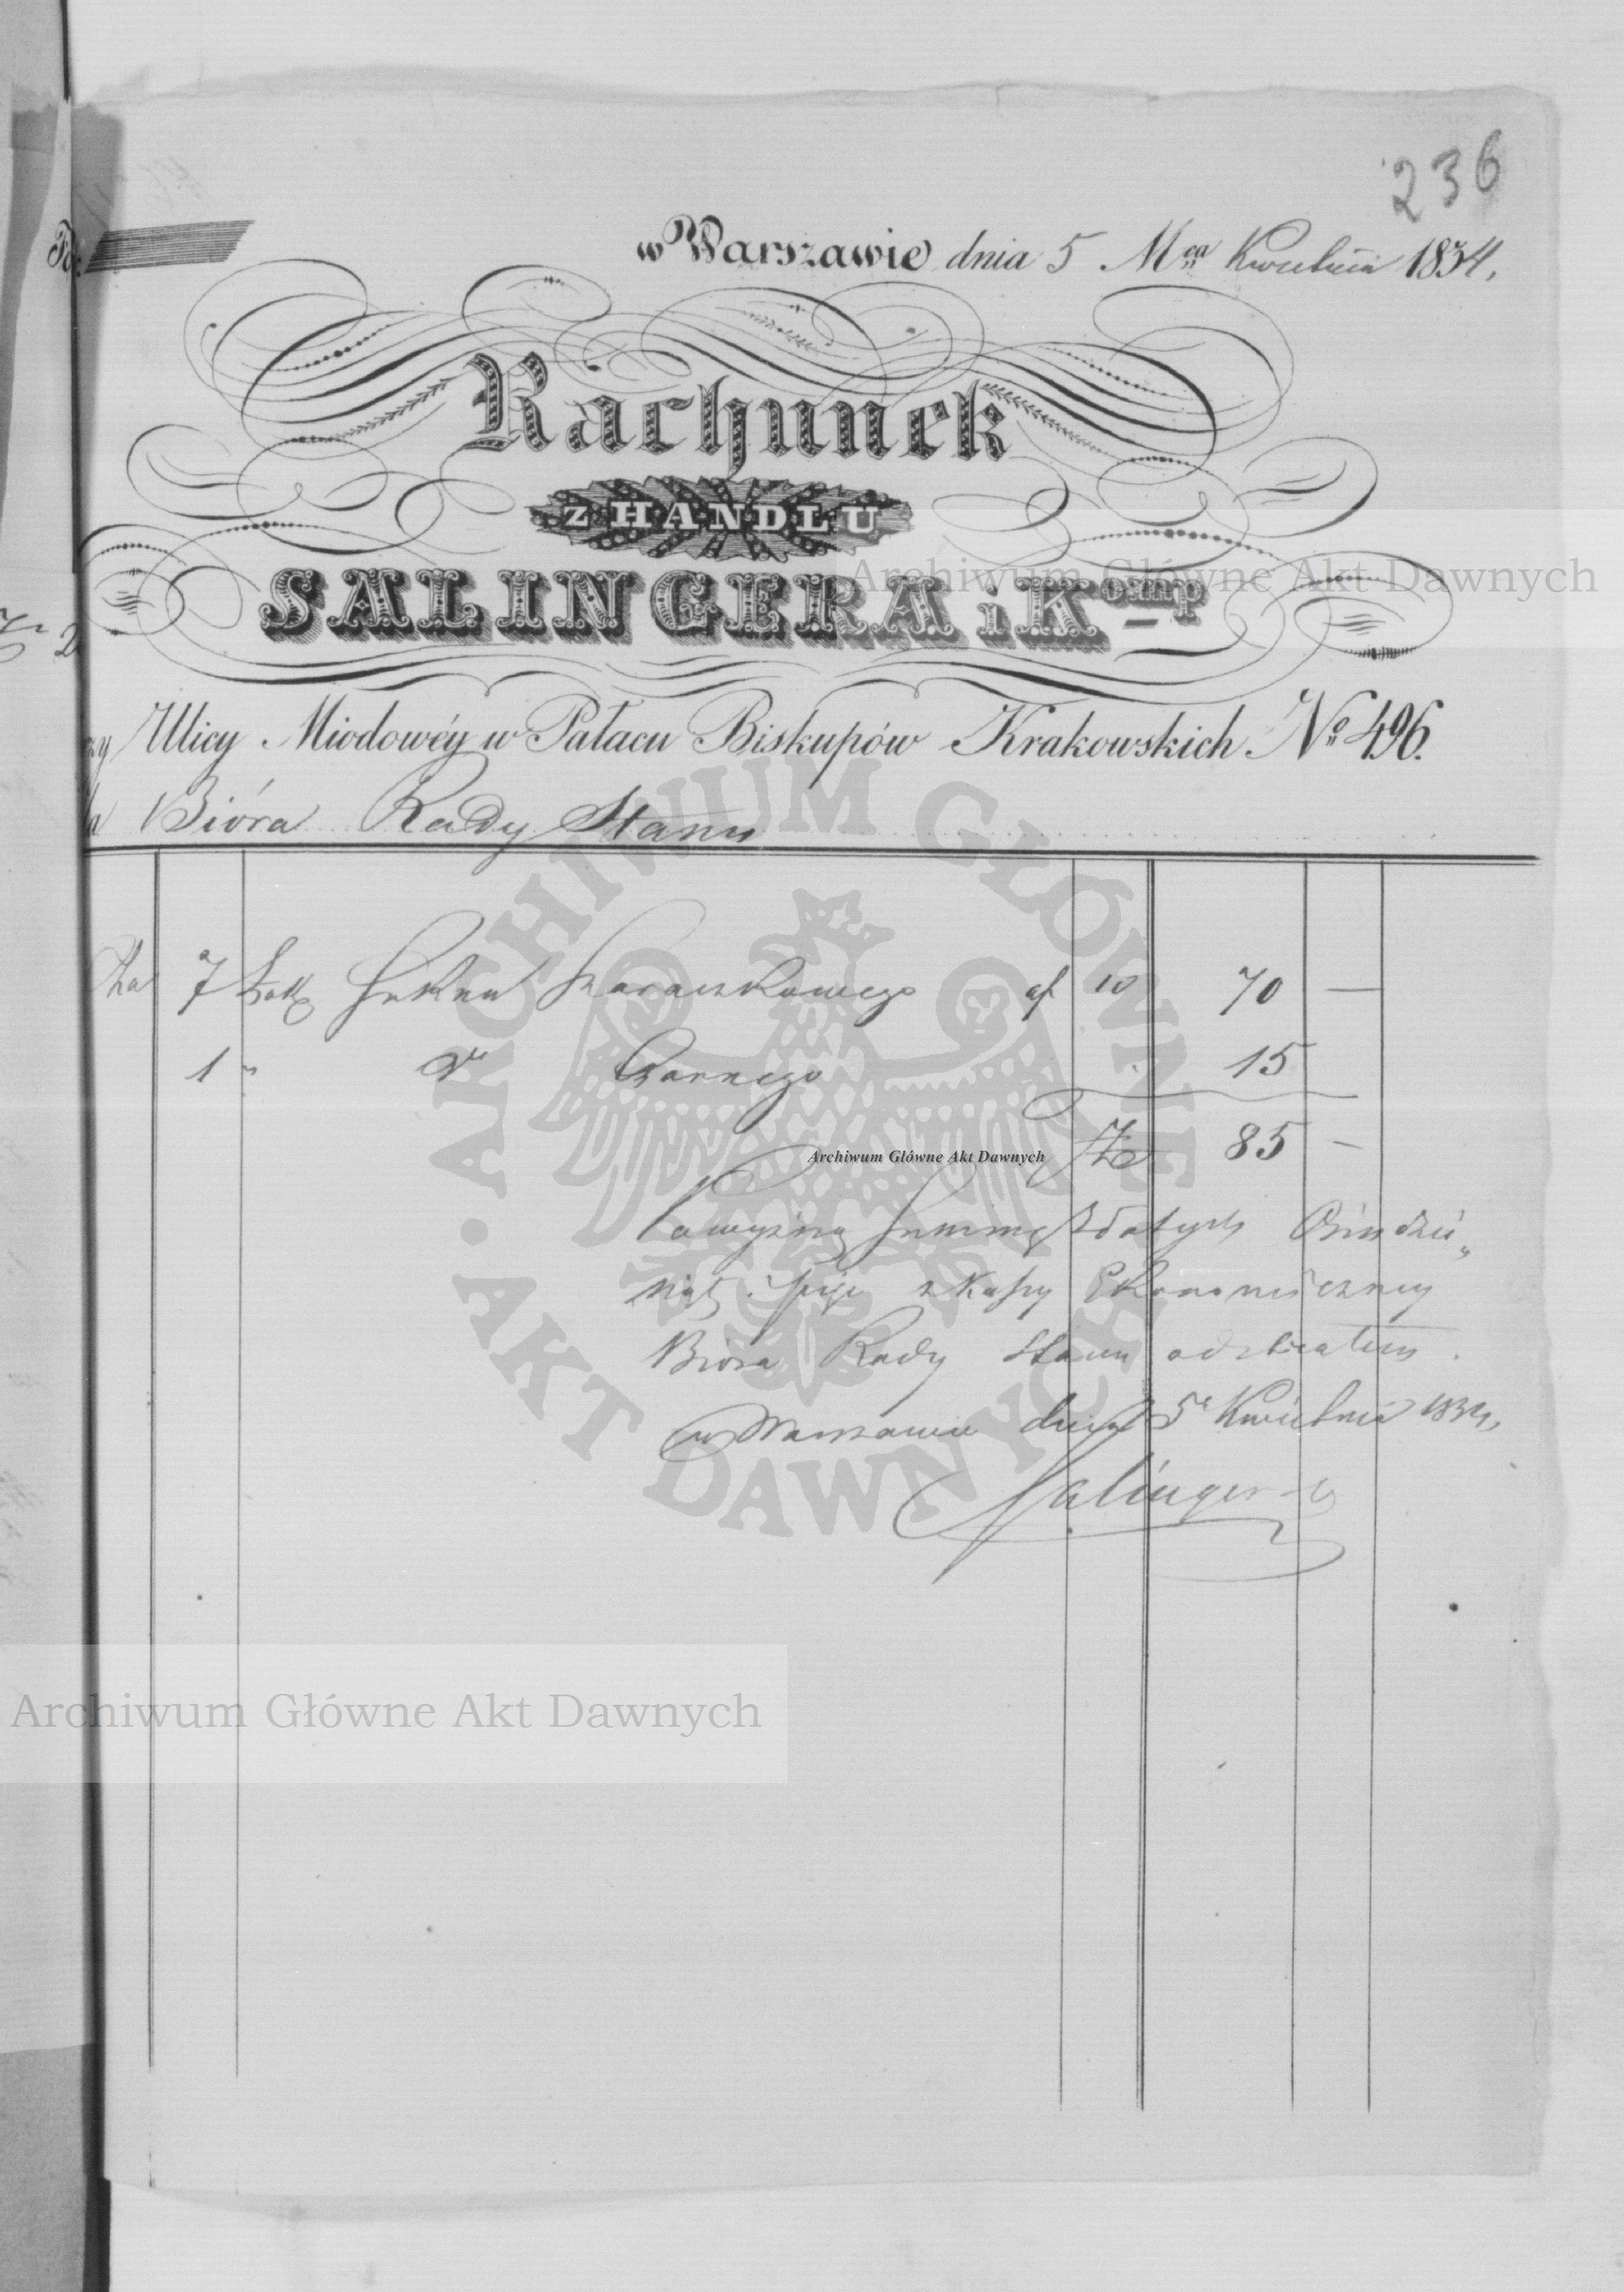 236
w Warszawie dnia 5 Mca Kwietnia 1834,
Rachunek
Z HANDLU
SALINGERA i Komp
Archiwum Główne Akt Dawnych
zy Ulicy Miodowéy w Pałacu Biskupów Krakowskich No 496.
la Bióra Rady Stanu
Za 7 Łok Sukna Szaraczkowego af 10 70 —
1 " do Czarnego 15
Zł 85 —
Archiwum Główne Akt Dawnych
Powyższą Summę Złotych Ośmdzie„
siąt pięć z Kassy Ekonomiczney
Biora Rady Stanu odebrałem.
w Warszawie dnia 5 Kwietnia 1834,
Salinger
ARCHIWUM GŁÓWNE AKT DAWNYCH
Archiwum Główne Akt Dawnych